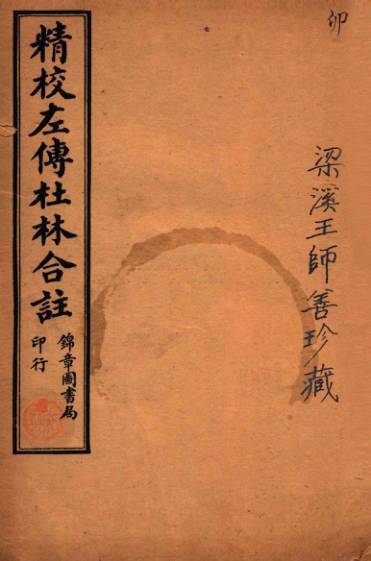 卯
梁溪王師善珍藏
精校左傳杜林合註
錦章圖書局
印行